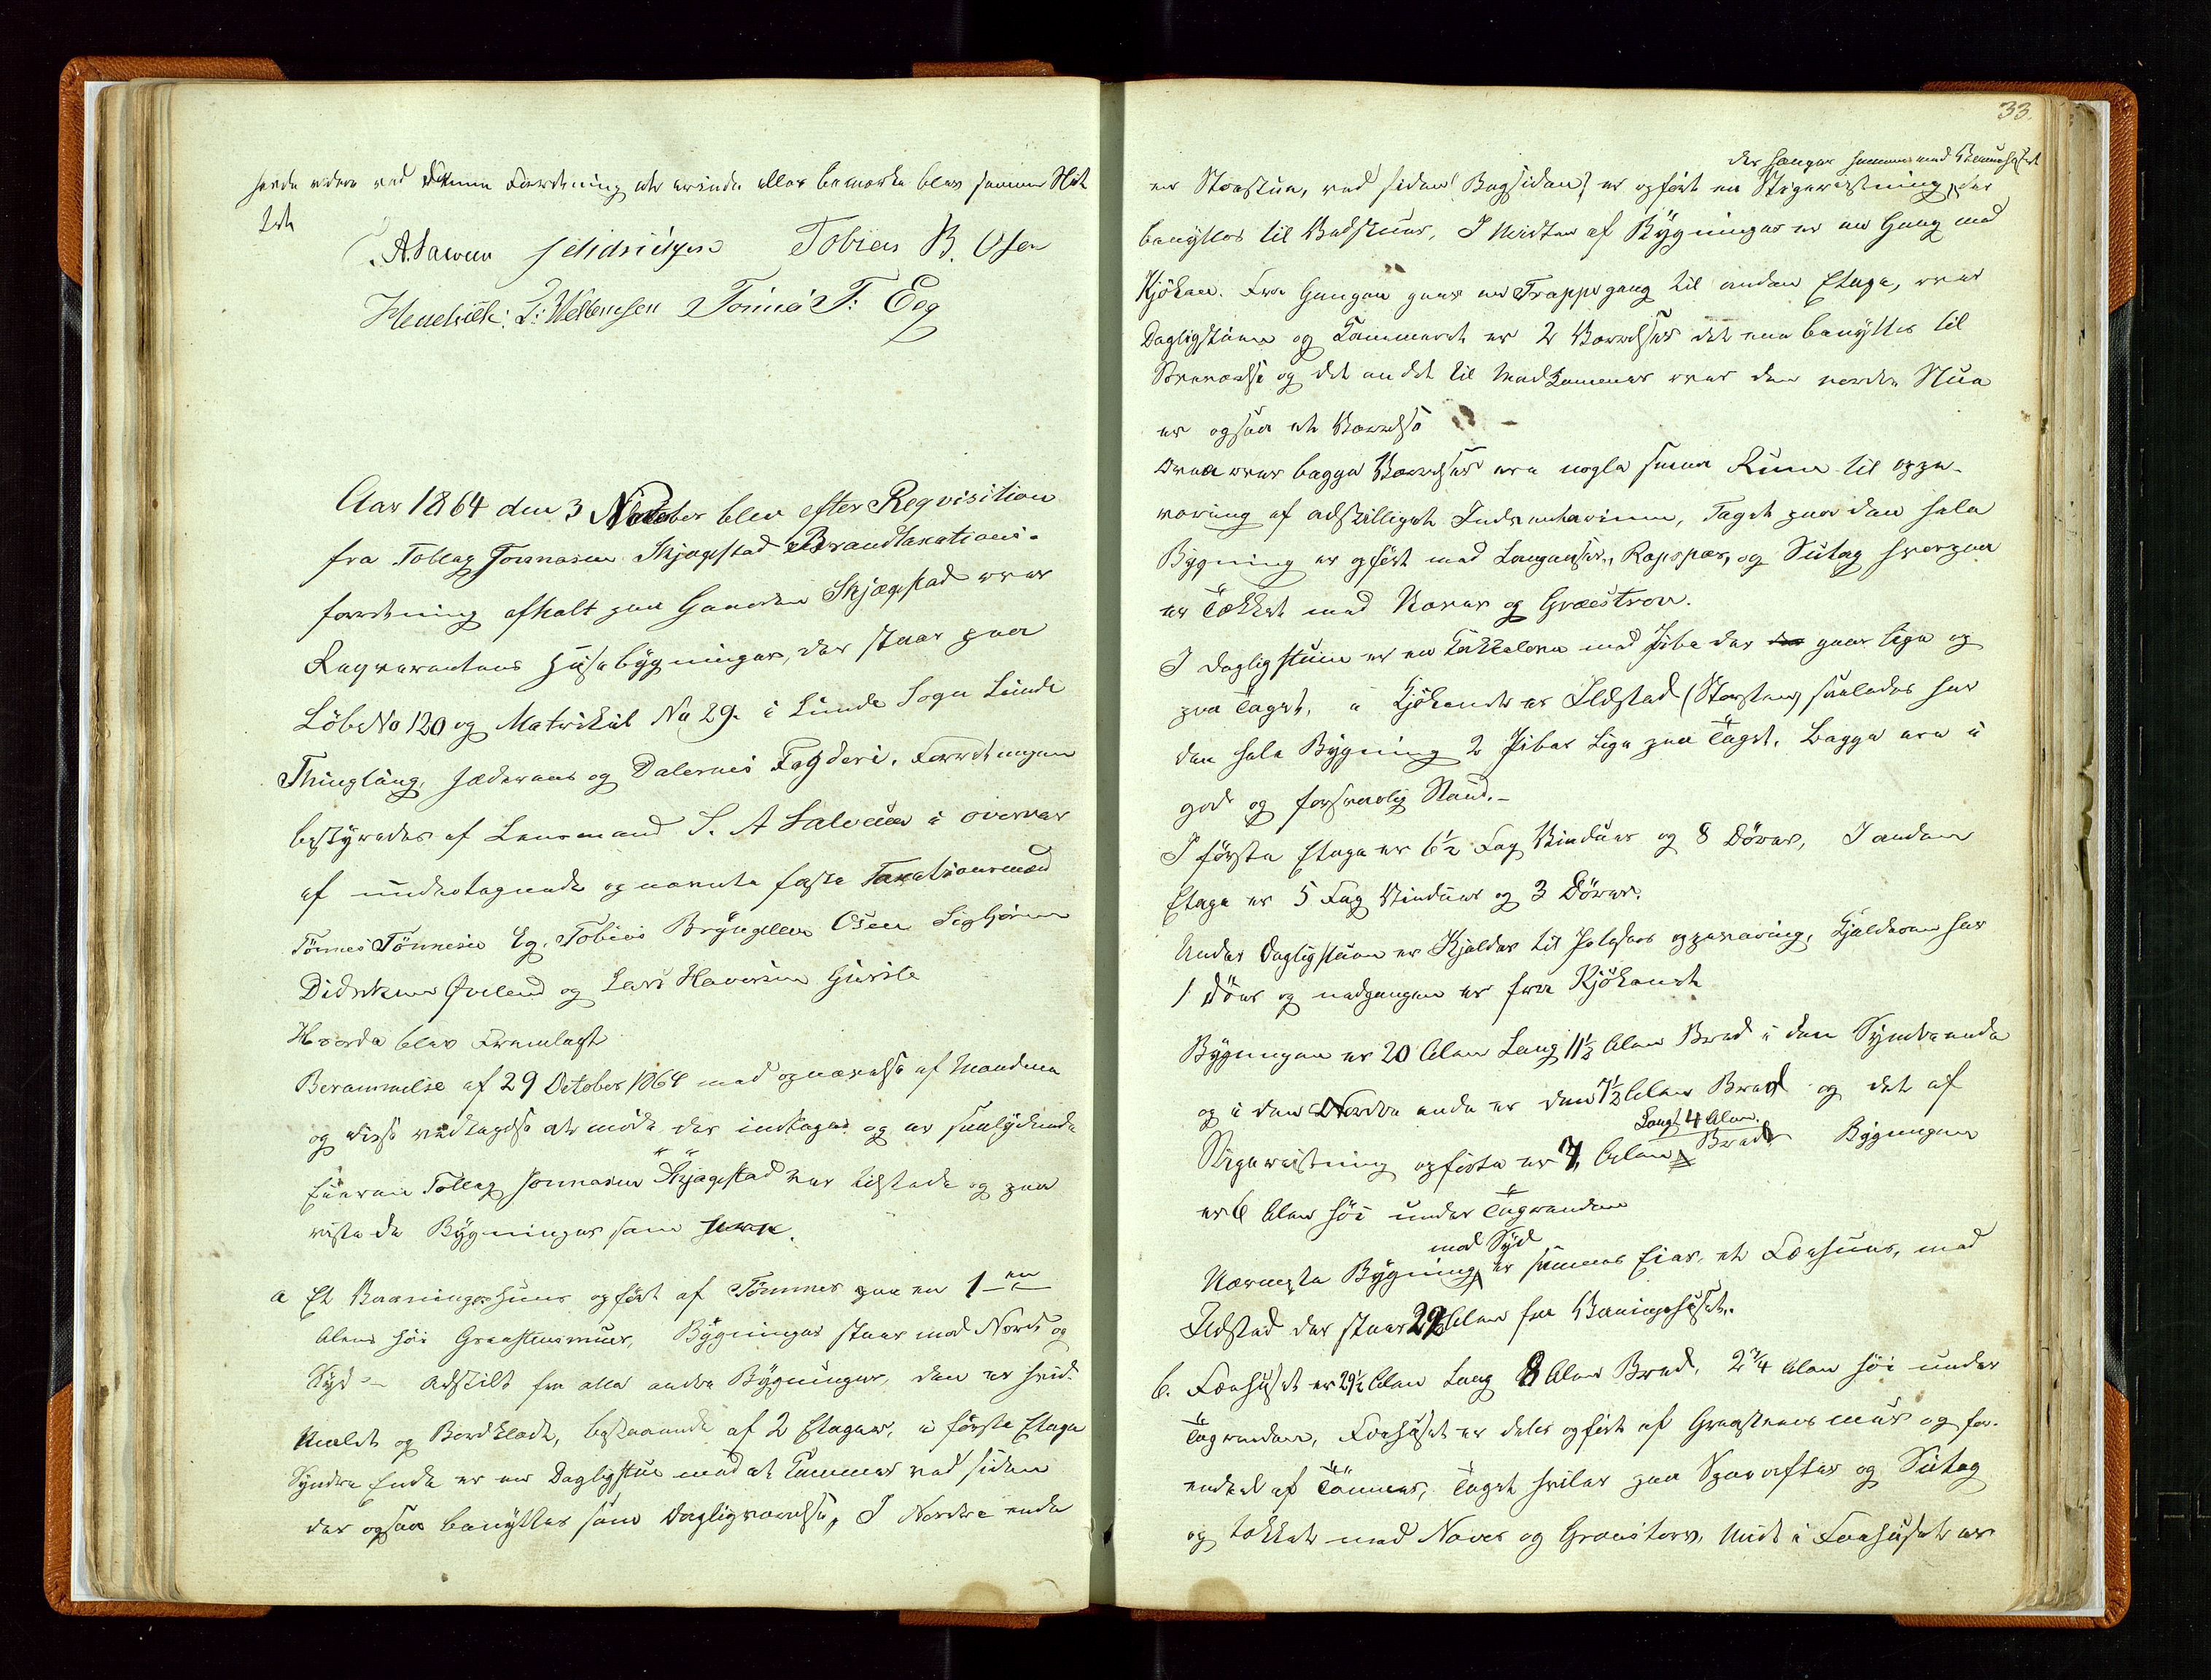 havde videre ved denne Forretning at erindre eller bemærke blev samme Slut
tet
S. A. Salvesen S Didriksen Tobias B. Osen
Hendrik: T: Wellemsen Tönnes T: Eeg
Aar 1864 den 3 November blev efter Reqvisition
fra Tollag Jonnasen Skjægstad Brandtaxations-
forretning afholt paa Gaarden Skjægstad over
Reqverentens Huusebygninger, der staar paa
Löb No 120 og Matrikul No 29. i Lunde Sogn Lunde
Thinglaug, Jæderens og Dalernes Fogderi. Forretningen
bestyredes af Lensmand S. A Salvesen i overvær
af underteguede opnævnte faste Taxationsmænd
Tönnes Tönnesen Eg, Tobias Bryngelsen Osen Sigbjörn
Didriksen Qveland og Lars Haversen Gursle
Hvorda blev Fremlagt
Berammelse af 29 October 1864 med opnævelse af Mændene
og disse vedtagelse at möde der indtages og er saalydende
Eieren Tollag Jonnasen Skjægstad var tilstede og paa
viste de Bygninger som
a Et Vaaningshuus opfört af Tömmer paa en 1 en
Alens höi Graastensmuur, Bygningen staar mod Nord og
Syd – Adskilt fra alle andre Bygninger, den er hvid-
maldt og Bordklædt, bestaaende af 2 Etager, i förste Etage
Syndre Ende er en Dagligstue med et Kammer ved siden
der ogsaa benyttes som Dagligværelse, I Nordre ende
33.
der hænger sammen med Vaanehuset
er Storstue, ved siden (Bagsiden) er opfört en Stigereisning, der
benyttes til Badstuer, I Midten af Bygningen er en Gang med
Kjökken. Fra Gangen gaar en Trappegang til anden Etage, over
Dagligstuen og Kammeret er 2 Værelser det ene benyttes til
Værelse og det andet til Madkammer over den nordre Stue
er ogsaa et Værelse
Oven over begge Værelser ere nogle smaa Rum til oppe-
varing af adskilligt Indrentarium, Taget paa den hele
Bygning er opfört med Langaaser, Rapspær, og Sutag hvorpaa
er Tækket med Næver og Græstorv.
I dagligstuen er en Kakkelovn med Pibe der gaar lige op
paa Taget, i Kjökkenet er Ildstad (Skorsten) saaledes har
den hele Bygning 2 Piber lige paa Taget. Begge ere i
god og forsvarlig Stand.–
I förste Etage er 6½ Fag Vinduer og 8 Dörer, I anden
Etage er 5 Fag Vinduer og 3 Dörer.
Under Dagligstuen er Kjælder til Poteters oppevaring, Kjælderen har
1 Dör og nedgangen er fra Kjökkenet
Bygningen er 20 Alen Lang 11½ Alen Bred i den Syndre ende
og i den Nordre ende er den 7½ Alen Bred og det af
Langt 4 Alen.
Stigereisning opförte er 7, Alen Bredt Bygningen
er 6 Alen höi under Tagranden
mod Syd
Nærmeste Bygning er samme Eier, et Fæehuus, med
Ildstad der staar 29 Alen fra Vaaningshuset.
b. Fæehuset er 29½ Alen Lang 8 Alen Bred, 2¾ Alen höi under
Tagranden, Fæehuset er deles opfört af Graastens muur og for-
endeel af Tömmer, Taget hviler paa Sparrefter og Sutag
og tækket med Næver og Græstorv. Midt i Fæehuset er